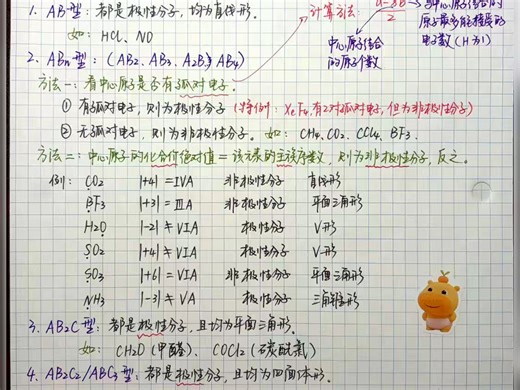 1. AB型：都是极性分子，均为直线形。
如：HCl、NO
计算方法：
a-xb
2
中心原子结合的原子个数
与中心原子结合的原子最多能接受的电子数（H为1）
2. ABn型：（AB2、AB3、A2B、AB4）
方法一：看中心原子是否有孤对电子。
① 有孤对电子，则为极性分子（特例：XeF4有2对孤对电子，但为非极性分子）
② 无孤对电子，则为非极性分子。如：CH4、CO2、CCl4、BF3.
方法二：中心原子的化合价绝对值=该元素的主族序数，则为非极性分子，反之。
例：CO2 |+4|=IVA 非极性分子 直线形
BF3 |+3|=ⅢA 非极性分子 平面三角形
H2O |-2|≠VIA 极性分子 V形
SO2 |+4|≠VIA 极性分子 V-形
SO3 |+6|=VIA 非极性分子 平面三角形
NH3 |-3|≠VA 极性分子 三角锥形
3. AB2C型：都是极性分子，且均为平面三角形。
如：CH2O（甲醛）、COCl2（碳酰氯）
4. AB2C2/ABC3型：都是极性分子，且均为四面体形。